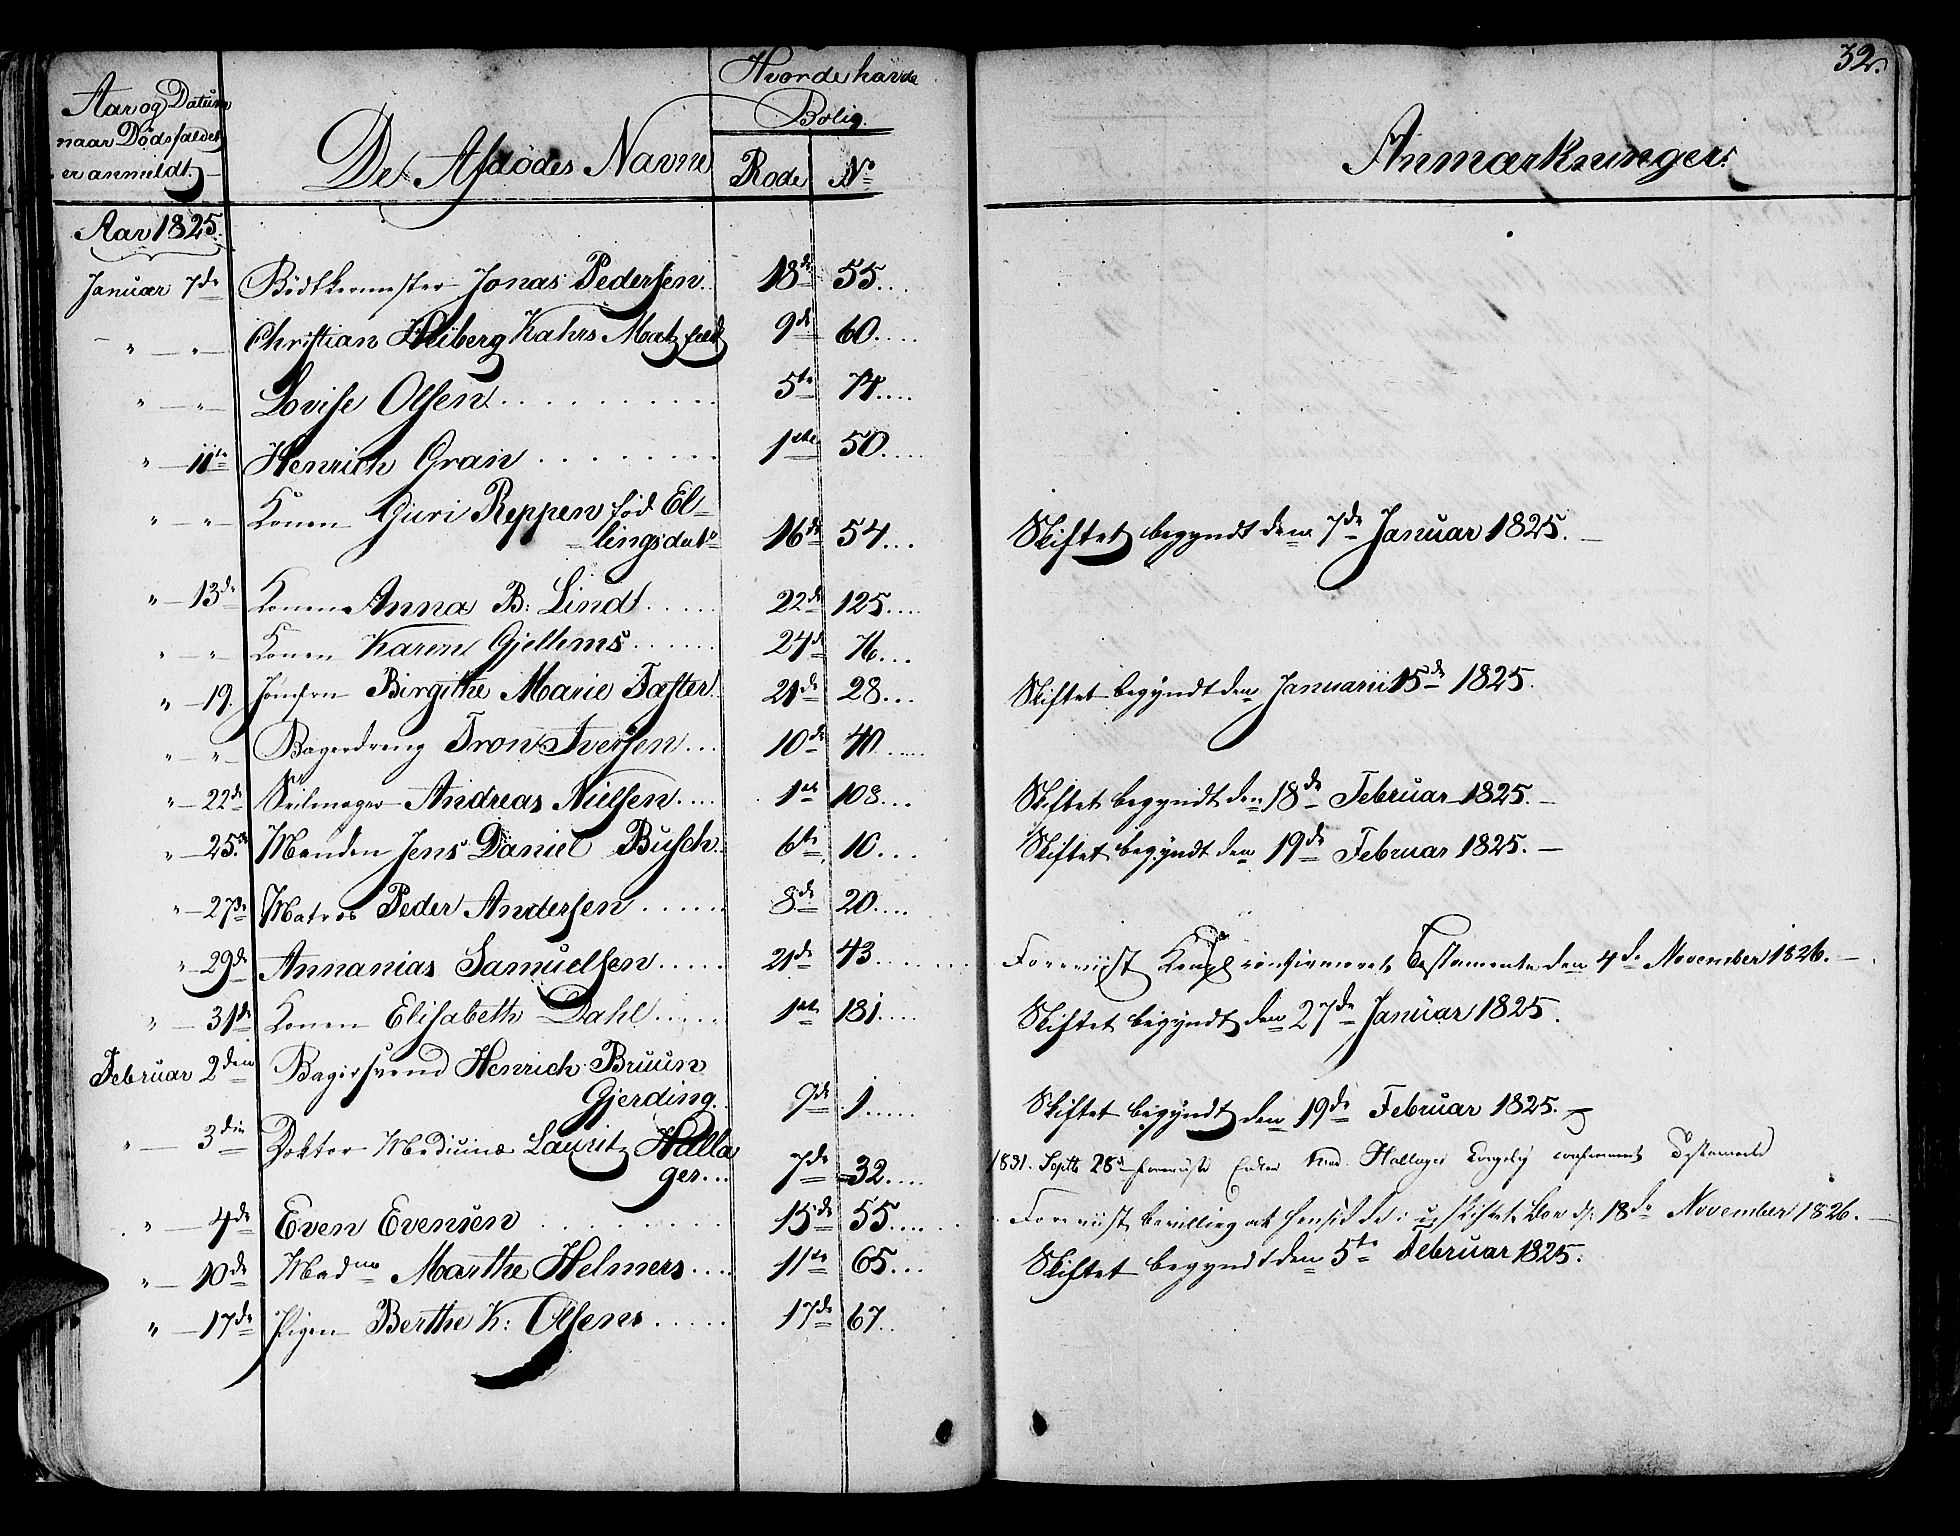 32.
Aar og Datum
naar Dødsfaldet
er anmeldt.
De Afdødes Navne
Hvor de havde
Bolig.
Rode No
Anmærkninger.
Aar 1825.
Januar 7de Bødkermester Jonas Pedersen. 18de 55....
" — " — Christian Heiberg Kahrs Matzfeldt 9de 60....
" — " — Lovise Olsen.......... 5te 74....
" — 11te Henrich Gran ......... 1ste 50....
" — " — Konen Guri Reppen fød El-
lingsdatr 16de 54... Skiftet begyndt den 7de Januar 1825. —
" — 13de Konen Anna B: Lindt..... 22de 125....
" — " — Konen Karen Gjellems...... 24de 76...
" — 19. Jomfru Birgithe Marie Taster. 21de 28... Skiftet begyndt den Januarii 15de 1825.
" — " — Bagerdreng Tron Iversen... 10de 40.....
" — 22de Seilmager Andreas Nielsen.... 1ste 108... Skiftet begyndt den 18de Februar 1825. —
" — 25de Manden Jens Daniel Busch. 6te 10... Skiftet begyndt den 19de Februar 1825. —
" — 27de Matros Peder Andersen...... 8de 20....
" — 29de Annanias Samuelsen..... 21de 43........ Foreviist Kongl confirmeret Testamente den 4de November 1826. —
" — 31te Konen Elisabeth Dahl...... 1ste 181.... Skiftet begyndt den 27de Januar 1825.
Februar 2den Bagersvend Henrich Bruun
Gjerding. 9de 1...... Skiftet begyndt den 19de Februar 1825. —
" — 3die Doktor Medicinæ Lauritz Halla
ger... 7de 32.... 1831. Septb 28d foreviiste Enken Mad. Hallager Kongelig confirmeret Testamente
" — 4de Even Evensen .......... 15de 55..... Foreviist bevilling at hensidde i uskiftet Boe d: 18de November 1826. —
" — 10de Madme Marthe Helmers.... 11te 65... Skiftet begyndt den 5te Februar 1825.
" — 17de Pigen Berthe K: Olsens...... 17de 67..